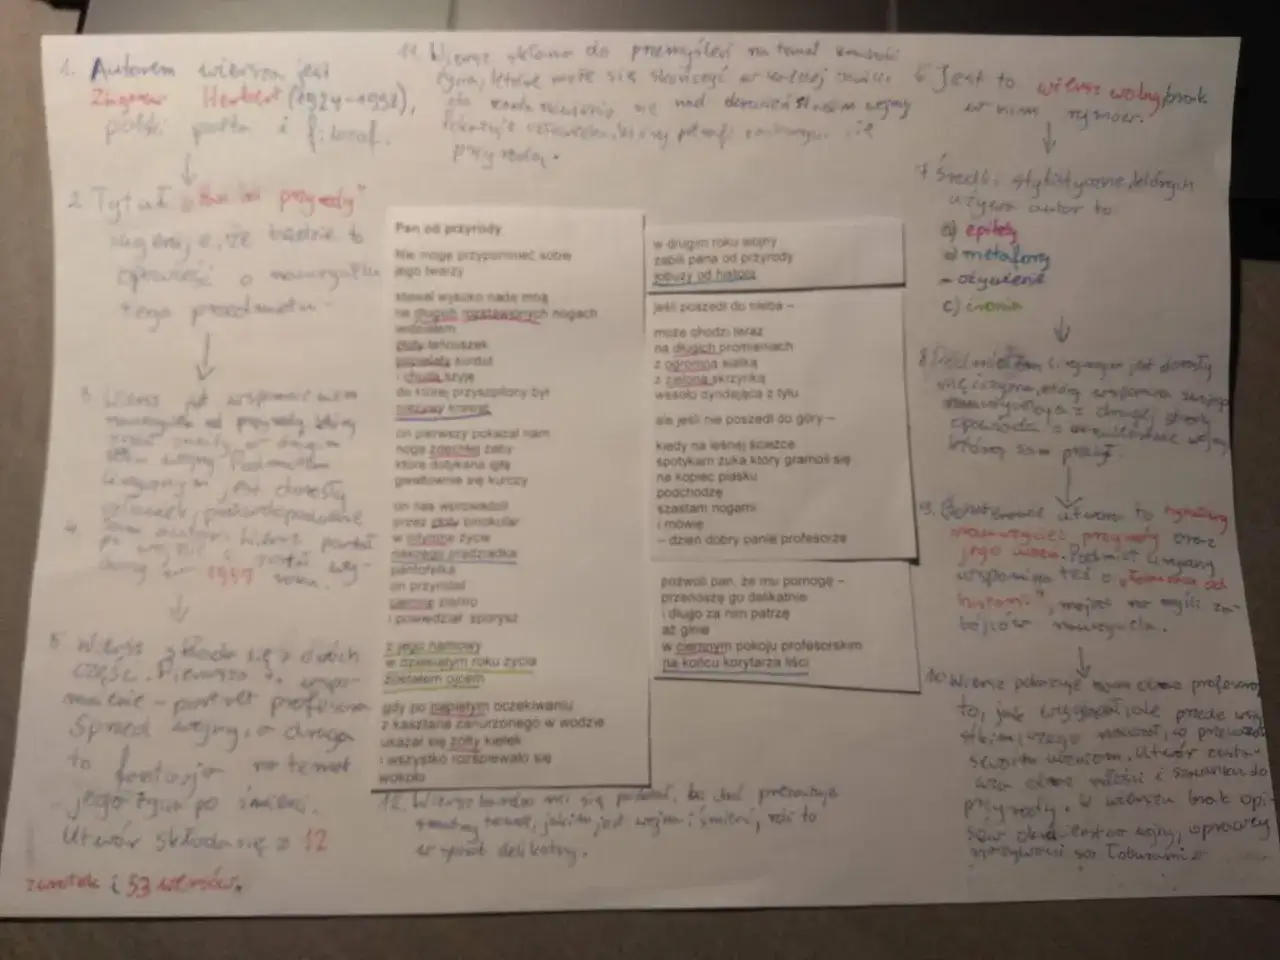 1. Autorem wiersza jest
Zbigniew Herbert (1924-1998),
polski poeta i filozof.
2. Tytuł "Pan od przyrody"
sugeruje, że będzie to
opowieść o nauczycielu
tego przedmiotu.
3. Wiersz jest wspomnieniem
nauczyciela od przyrody, który
w drugim
wojny Podmiotem
lirycznym jest dorosły
człowiek,
4.
po wojnie i został wy-
dany w 1957 roku.
5. Wiersz składa się z dwóch
części. Pierwsza to wspo-
mnienie - portret profesora
sprzed wojny, a druga
to fantazja na temat
jego życia po śmierci.
Utwór składa się z 12
zwrotek i 53 wersów.
11. Wiersz skłania do przemyśleń na temat kruchości
życia, które może się skończyć w każdej chwili.
nad okrucieństwem wojny
człowieka, który potrafi
przyrodą.
Pan od przyrody
Nie mogę przypomnieć sobie
jego twarzy
stawał wysoko nade mną
na długich rozstawionych nogach
widziałem
złoty łańcuszek
popielaty surdut
i chudą szyję
do której przyszpilony był
nieżywy krawat
on pierwszy pokazał nam
nogę zdechłej żaby
która dotykana igłą
gwałtownie się kurczy
on nas wprowadził
przez złoty binokular
w intymne życie
naszego pradziadka
pantofelka
on przyniósł
ciemne ziarno
i powiedział: sporysz
z jego namowy
w dziesiątym roku życia
zostałem ojcem
gdy po napiętym oczekiwaniu
z kasztana zanurzonego w wodzie
ukazał się żółty kiełek
i wszystko rozśpiewało się
wokoło
w drugim roku wojny
zabili pana od przyrody
łobuzy od historii
jeśli poszedł do nieba –
może chodzi teraz
na długich promieniach
z ogromną siatką
z zieloną skrzynką
wesoło dyndającą z tyłu
ale jeśli nie poszedł do góry –
kiedy na leśnej ścieżce
spotykam żuka który gramoli się
na kopiec piasku
podchodzę
szastam nogami
i mówię
– dzień dobry panie profesorze
pozwoli pan, że mu pomogę –
przenoszę go delikatnie
i długo za nim patrzę
aż ginie
w ciemnym pokoju profesorskim
na końcu korytarza liści
12. Wiersz bardzo mi się podobał, bo choć prezentuje
temat, jakim jest wojna i śmierć, robi to
w sposób delikatny.
6. Jest to wiersz wolny, brak
w nim rymów.
7. Środki stylistyczne, których
używa autor to:
a) epitety
b) metafory
- ożywienie
c) ironia
8. Podmiotem lirycznym jest dorosły
mężczyzna, który wspomina swojego
nauczyciela z drugiej strony
opowiada o wojny,
którą sam przeżył.
9. Bohaterowie utworu to
nauczyciel przyrody oraz
jego Podmiot liryczny
wspomina też o "łobuzach od
historii", mając na myśli za-
bójców nauczyciela.
10. Wiersz pokazuje nam obraz profesora,
to, jak wyglądał, ale przede wszy-
stkim, czego nauczył, co przekazał
swoim uczniom. Utwór
obraz miłości i szacunku do
przyrody. W wierszu brak opi-
sów okrucieństw wojny, oprawcy
nazywani są łobuzami.